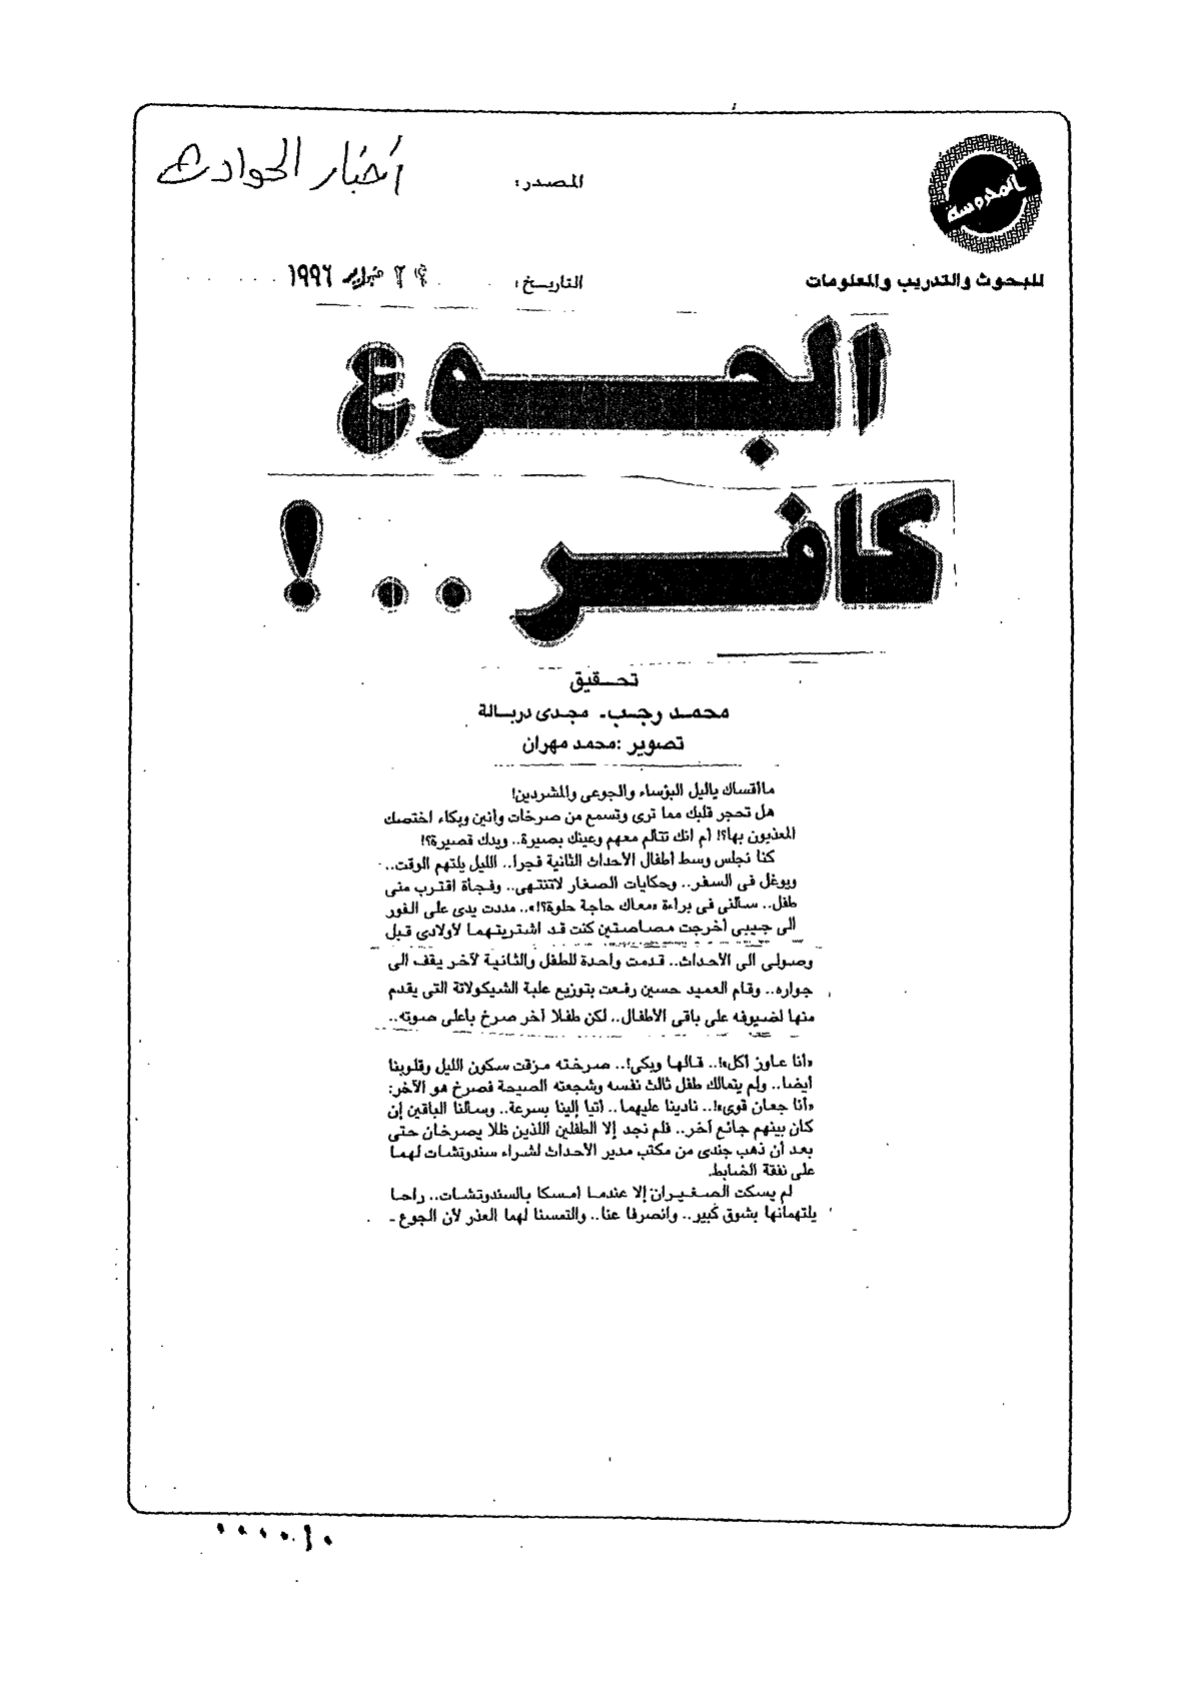 المحروسة
المصدر: أخبار الحوادث
للبحوث والتدريب والمعلومات
التاريخ: فبراير ١٩٩٦
الجوع
كافر .. !
تحقيق
محمد رجب ـ مجدى دربالة
تصوير :محمد مهران
ماأقساك ياليل البؤساء والجوعى والمشردين!
هل تحجر قلبك مما ترى وتسمع من صرخات وأنين وبكاء اختصك
المعذبون بها؟! أم انك تتألم معهم وعينك بصيرة.. ويدك قصيرة؟!
كنا نجلس وسط أطفال الأحداث الثانية فجرا.. الليل يلتهم الوقت..
ويوغل فى السفر.. وحكايات الصغار لاتنتهى.. وفجأة اقترب منى
طفل.. سألنى فى براءة «معاك حاجة حلوة؟!».. مددت يدى على الفور
الى جيبى أخرجت مصاصتين كنت قد اشتريتهما لأولادى قبل
وصولى الى الأحداث.. قدمت واحدة للطفل والثانية لآخر يقف الى
جواره.. وقام العميد حسين رفعت بتوزيع علبة الشيكولاتة التى يقدم
منها لضيوفه على باقى الأطفال.. لكن طفلا آخر صرخ بأعلى صوته..
«أنا عاوز أكل»!.. قالها وبكى!.. صرخته مزقت سكون الليل وقلوبنا
أيضا.. ولم يتمالك طفل ثالث نفسه وشجعته الصيحة فصرخ هو الآخر:
«أنا جعان قوى»!.. نادينا عليهما.. أتيا إلينا بسرعة.. وسألنا الباقين إن
كان بينهم جائع آخر.. فلم نجد إلا الطفلين اللذين ظلا يصرخان حتى
بعد أن ذهب جندى من مكتب مدير الأحداث لشراء سندوتشات لهما
على نفقة الضابط.
لم يسكت الصغيران إلا عندما أمسكا بالسندوتشات.. راحا
يلتهمانها بشوق كبير.. وانصرفا عنا.. والتمسنا لهما العذر لأن الجوع -